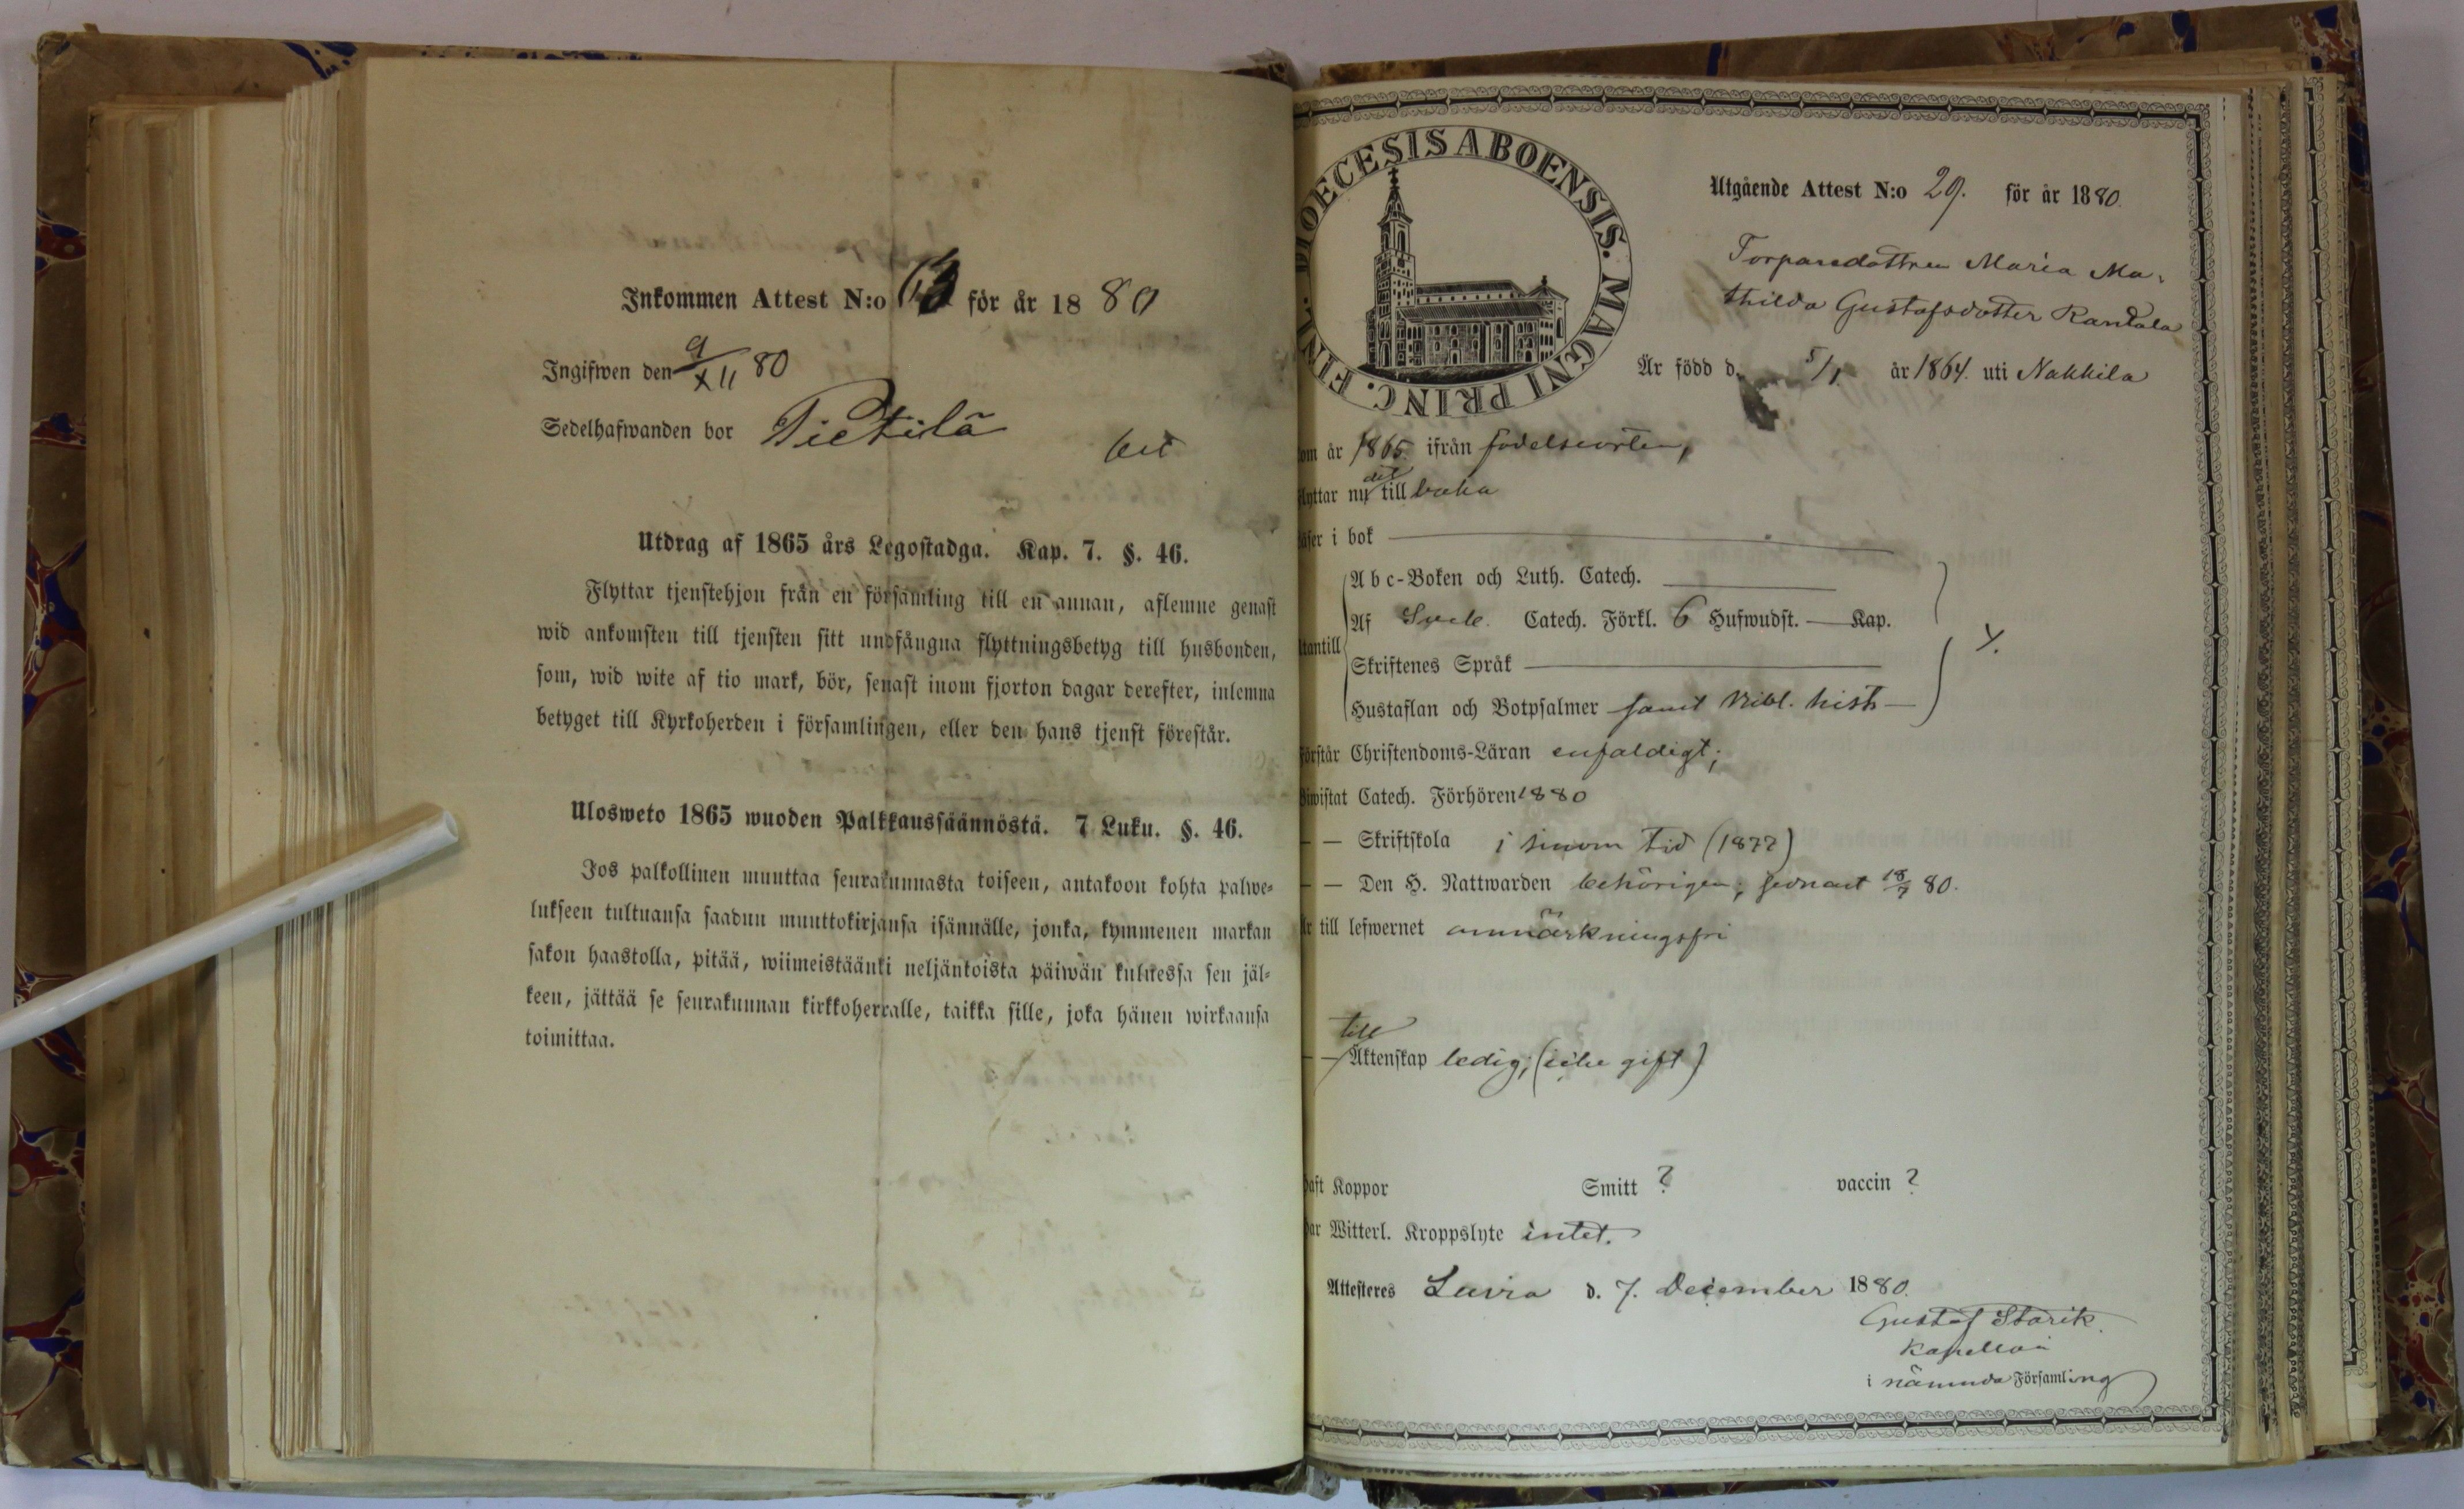 Inkommen Attest N:o 63 för år 1880
Ingifwen den 9/XII 80
Sedelhafwanden bor Pietilä
Utdrag af 1865 års Legostadga. Kap. 7. §. 46.
Flyttar tjenstehjon från en församling till en annan, aflemne genast
wid ankomsten till tjensten sitt undfångna flyttningsbetyg till husbonden,
som, wid wite af tio mark, bör, senast inom fjorton dagar derefter, inlemna
betyget till Kyrkoherden i församlingen, eller den hans tjenst förestår.
Ulosweto 1865 wuoden Palkkaussäännöstä. 7 Luku. §. 46.
Jos palkollinen muuttaa seurakunnasta toiseen, antakoon kohta palwe-
lukseen tultuansa saadun muuttokirjansa isännälle, jonka, kymmenen markan
sakon haastolla, pitää, wiimeistäänki neljäntoista päiwän kuluessa sen jäl-
keen, jättää se seurakunnan kirkkoherralle, taikka sille, joka hänen wirkaansa
toimittaa.
DIOECESIS ABOENSIS. MAGNI PRINC. FINL.
Utgående Attest N:o 29. för år 1880.
Torparedottren Maria Ma-
thilda Gustafsdotter Rantala
Är född d. 5/1 år 1864. uti Nakkila
om år 1865. ifrån födelseorten,
flyttar nu dit till baka
läser i bok
Abc-Boken och Luth. Catech.
Af Sveb. Catech. Förkl. 6 Hufwudst. — Kap.
utantill
Skriftenes Språk
Hustaflan och Botpsalmer samt bibl. hist.
förstår Christendoms-Läran enfaldigt;
Biwistat Catech. Förhören 1880
— — Skriftskola i sinom tid (1877)
— — Den H. Nattwarden behörigen; sednast 18/7 80.
Är till lefwernet anmärkningsfri
— — till Äktenskap ledig; (icke gift)
haft Koppor Smitt ? vaccin ?
har Witterl. Kroppslyte intet.
Attesteres Luvia d. 7. December 1880.
Gustaf Starck.
Kapellan
i nämnda Församling